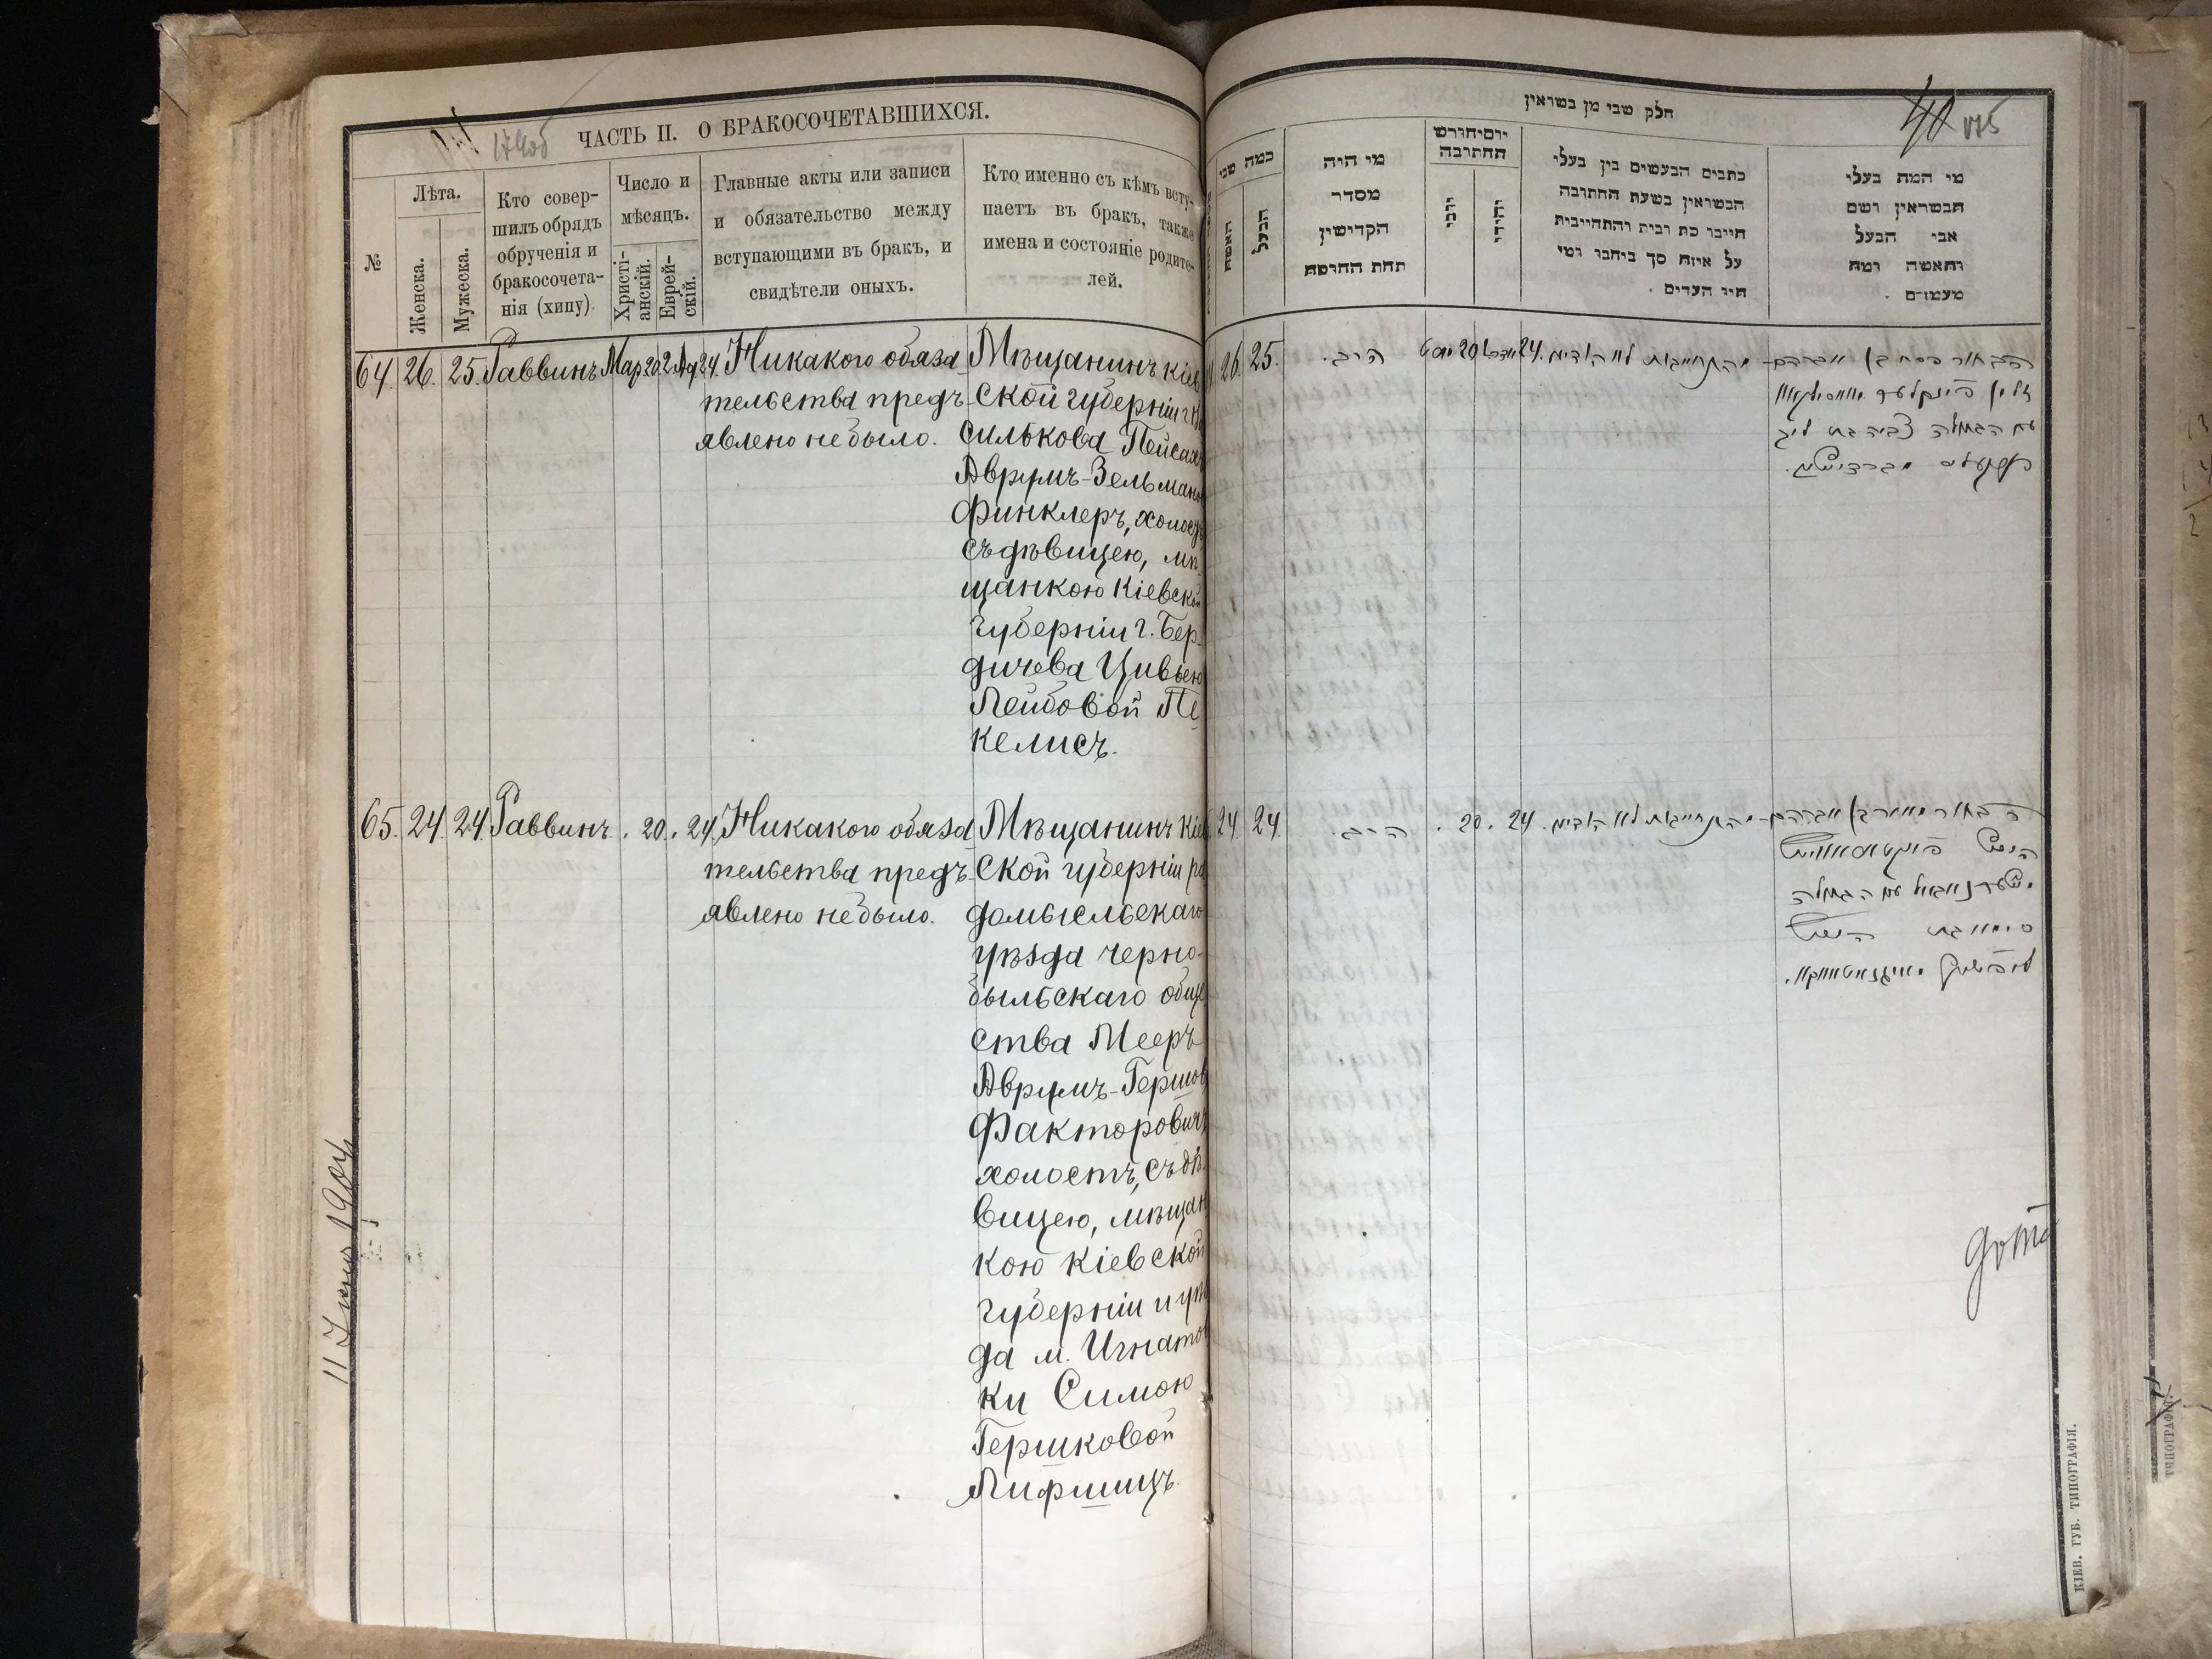 174об
ЧАСТЬ II. О БРАКОСОЧЕТАВШИХСЯ.
№
Лѣта.
Женска.
Мужеска.
Кто совер-
шилъ обрядъ
обрученія и
бракосочета-
нія (хипу)
Число и
мѣсяцъ.
Христі-
анскій.
Еврей-
скій.
Главные акты или записи
и обязательство между
вступающими въ бракъ, и
свидѣтели оныхъ.
Кто именно съ кѣмъ всту-
паетъ въ бракъ, также
имена и состояніе родите-
лей.
64. 26. 25. Раввинъ Мар 20 24. Никакого обяза
тельства предъ-
явлено небыло.
Мѣщанинъ Кіев
ской губерніи г. Ва
силькова Пейсахъ
Аврумъ-Зельмано
Финклеръ, холостъ
съ дѣвицею, мѣ
щанкою Кіевской
губерніи г. Бер-
дичева Цивьею
Лейбовой Пе
келисъ.
65. 24. 24. Раввинъ . 20. . 24. Никакого обяза
тельства предъ-
явлено небыло.
Мѣщанинъ Кіев
ской губерніи ра
домысльскаго
уѣзда черно-
быльскаго обще
ства Мееръ
Аврумъ-Гершов
Факторовичъ
холостъ, съ дѣ
вицею, мѣщан
кою Кіевской
губерніи и уѣз
да м. Игнатов
ки Симою
Гершковой
Лифшицъ.
11 Іюня 1904
חלק שני מן בשואין
175
כמה שני
האשה
הבעל
מי היה
מסדר
הקדישין
תחת החופה
יום וחודש
החתונה
נוצרי
יהודי
כתבים הנעשים בין בעלי
הנשואין בשעת החתונה
חייבו כת רבית והתחייבות
על איזה סך ביחבו ומי
היו העדים .
מי המה בעלי
הנשואין ושם
אבי הבעל
והאשה ומה
מעמדם .
26. 25. הרב. 20 24.
הבחור פסח בן אברהם
זלמן פינקלער
עם הבתולה צביה בת ליב
24. 24. הרב. . 20. 24.
הבחור מאיר בן אברהם
הירש
עם הבתולה
סימא בת הירש
КІЕВ. ГУБ. ТИПОГРАФІЯ.
ТИПОГРАФІЯ.